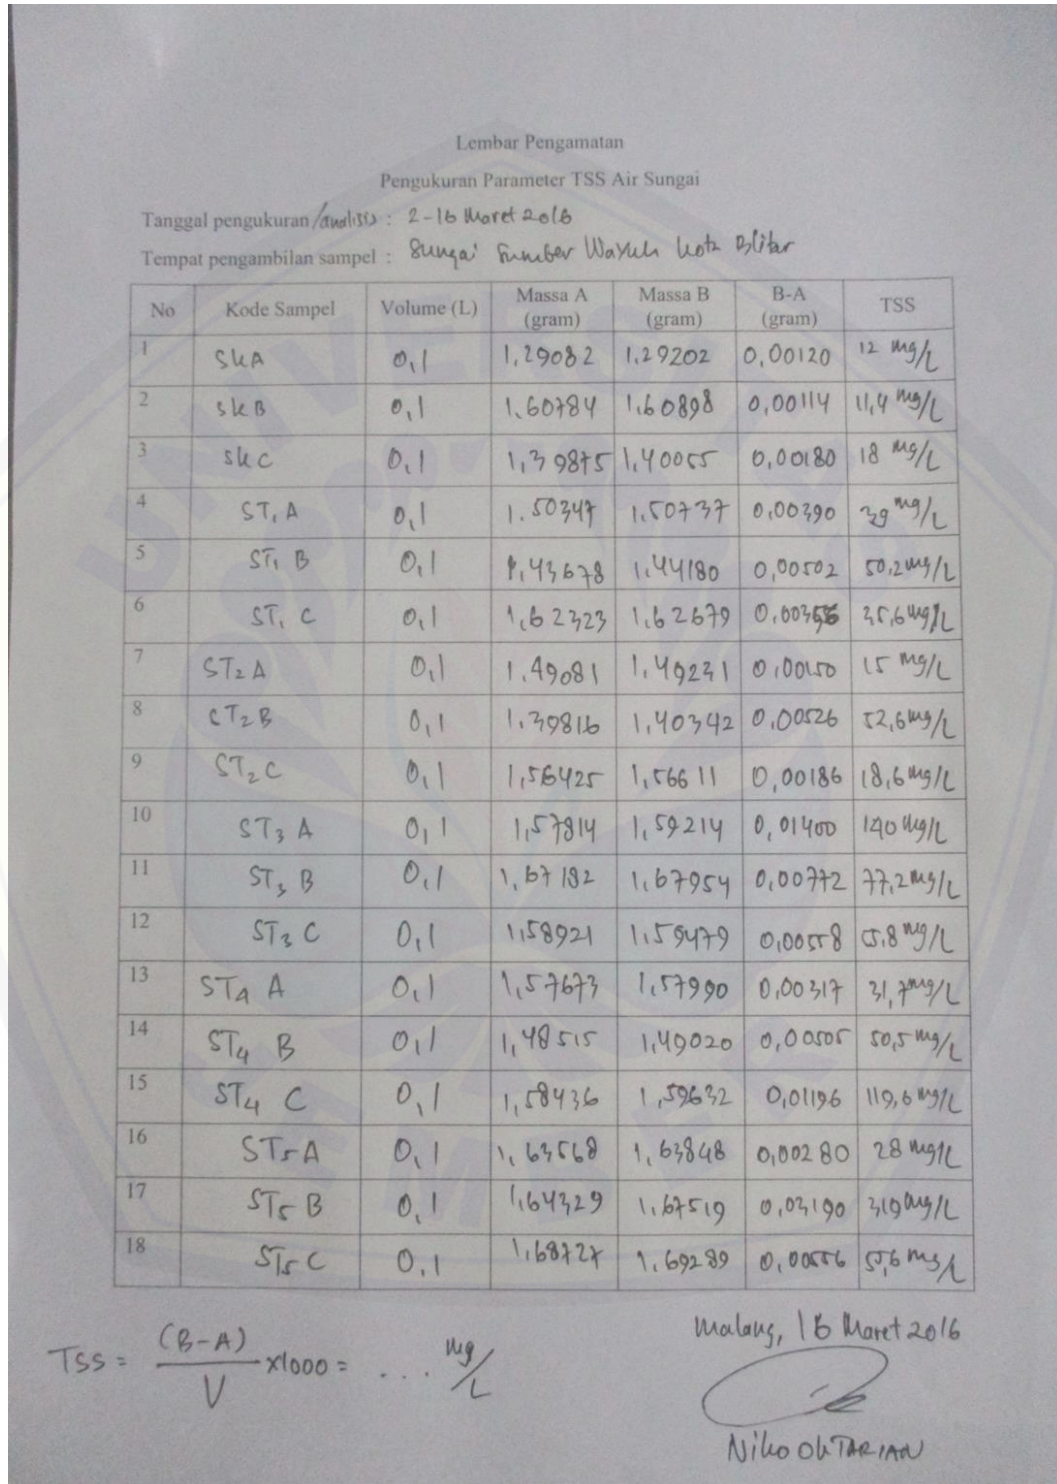 Lembar Pengamatan
Pengukuran Parameter TSS Air Sungai
Tanggal pengukuran/analisis : 2-16 Maret 2016
Tempat pengambilan sampel : Sungai Sumber Wayuh Kota Blitar
No Kode Sampel Volume (L) Massa A (gram) Massa B (gram) B-A (gram) TSS
1 SKA 0,1 1,29082 1.29202 0,00120 12 mg/L
2 SKB 0,1 1.60784 1.60898 0,00114 11,4 mg/L
3 SKC 0,1 1,39875 1,40055 0,00180 18 mg/L
4 ST1 A 0,1 1.50347 1.50737 0,00390 39 mg/L
5 ST1 B 0,1 1,43678 1.44180 0,00502 50,2 mg/L
6 ST1 C 0,1 1,62323 1,62679 0,00356 35,6 mg/L
7 ST2 A 0,1 1.49081 1,49231 0,00150 15 mg/L
8 ST2 B 0,1 1.39816 1,40342 0,00526 52,6 mg/L
9 ST2 C 0,1 1,56425 1,56611 0,00186 18,6 mg/L
10 ST3 A 0,1 1,57814 1,59214 0,01400 140 mg/L
11 ST3 B 0,1 1,67182 1,67954 0,00772 77,2 mg/L
12 ST3 C 0,1 1,58921 1,59479 0,00558 55,8 mg/L
13 ST4 A 0,1 1,57673 1,57990 0,00317 31,7 mg/L
14 ST4 B 0,1 1,48515 1,49020 0,00505 50,5 mg/L
15 ST4 C 0,1 1,58436 1,59632 0,01196 119,6 mg/L
16 ST5 A 0,1 1,63568 1,63848 0,00280 28 mg/L
17 ST5 B 0,1 1,64329 1,67519 0,03190 319 mg/L
18 ST5 C 0,1 1,68727 1.69289 0,00556 55,6 mg/L
TSS = (B-A)/V x1000 = ... mg/L
Malang, 16 Maret 2016
Niko OKTARIAN